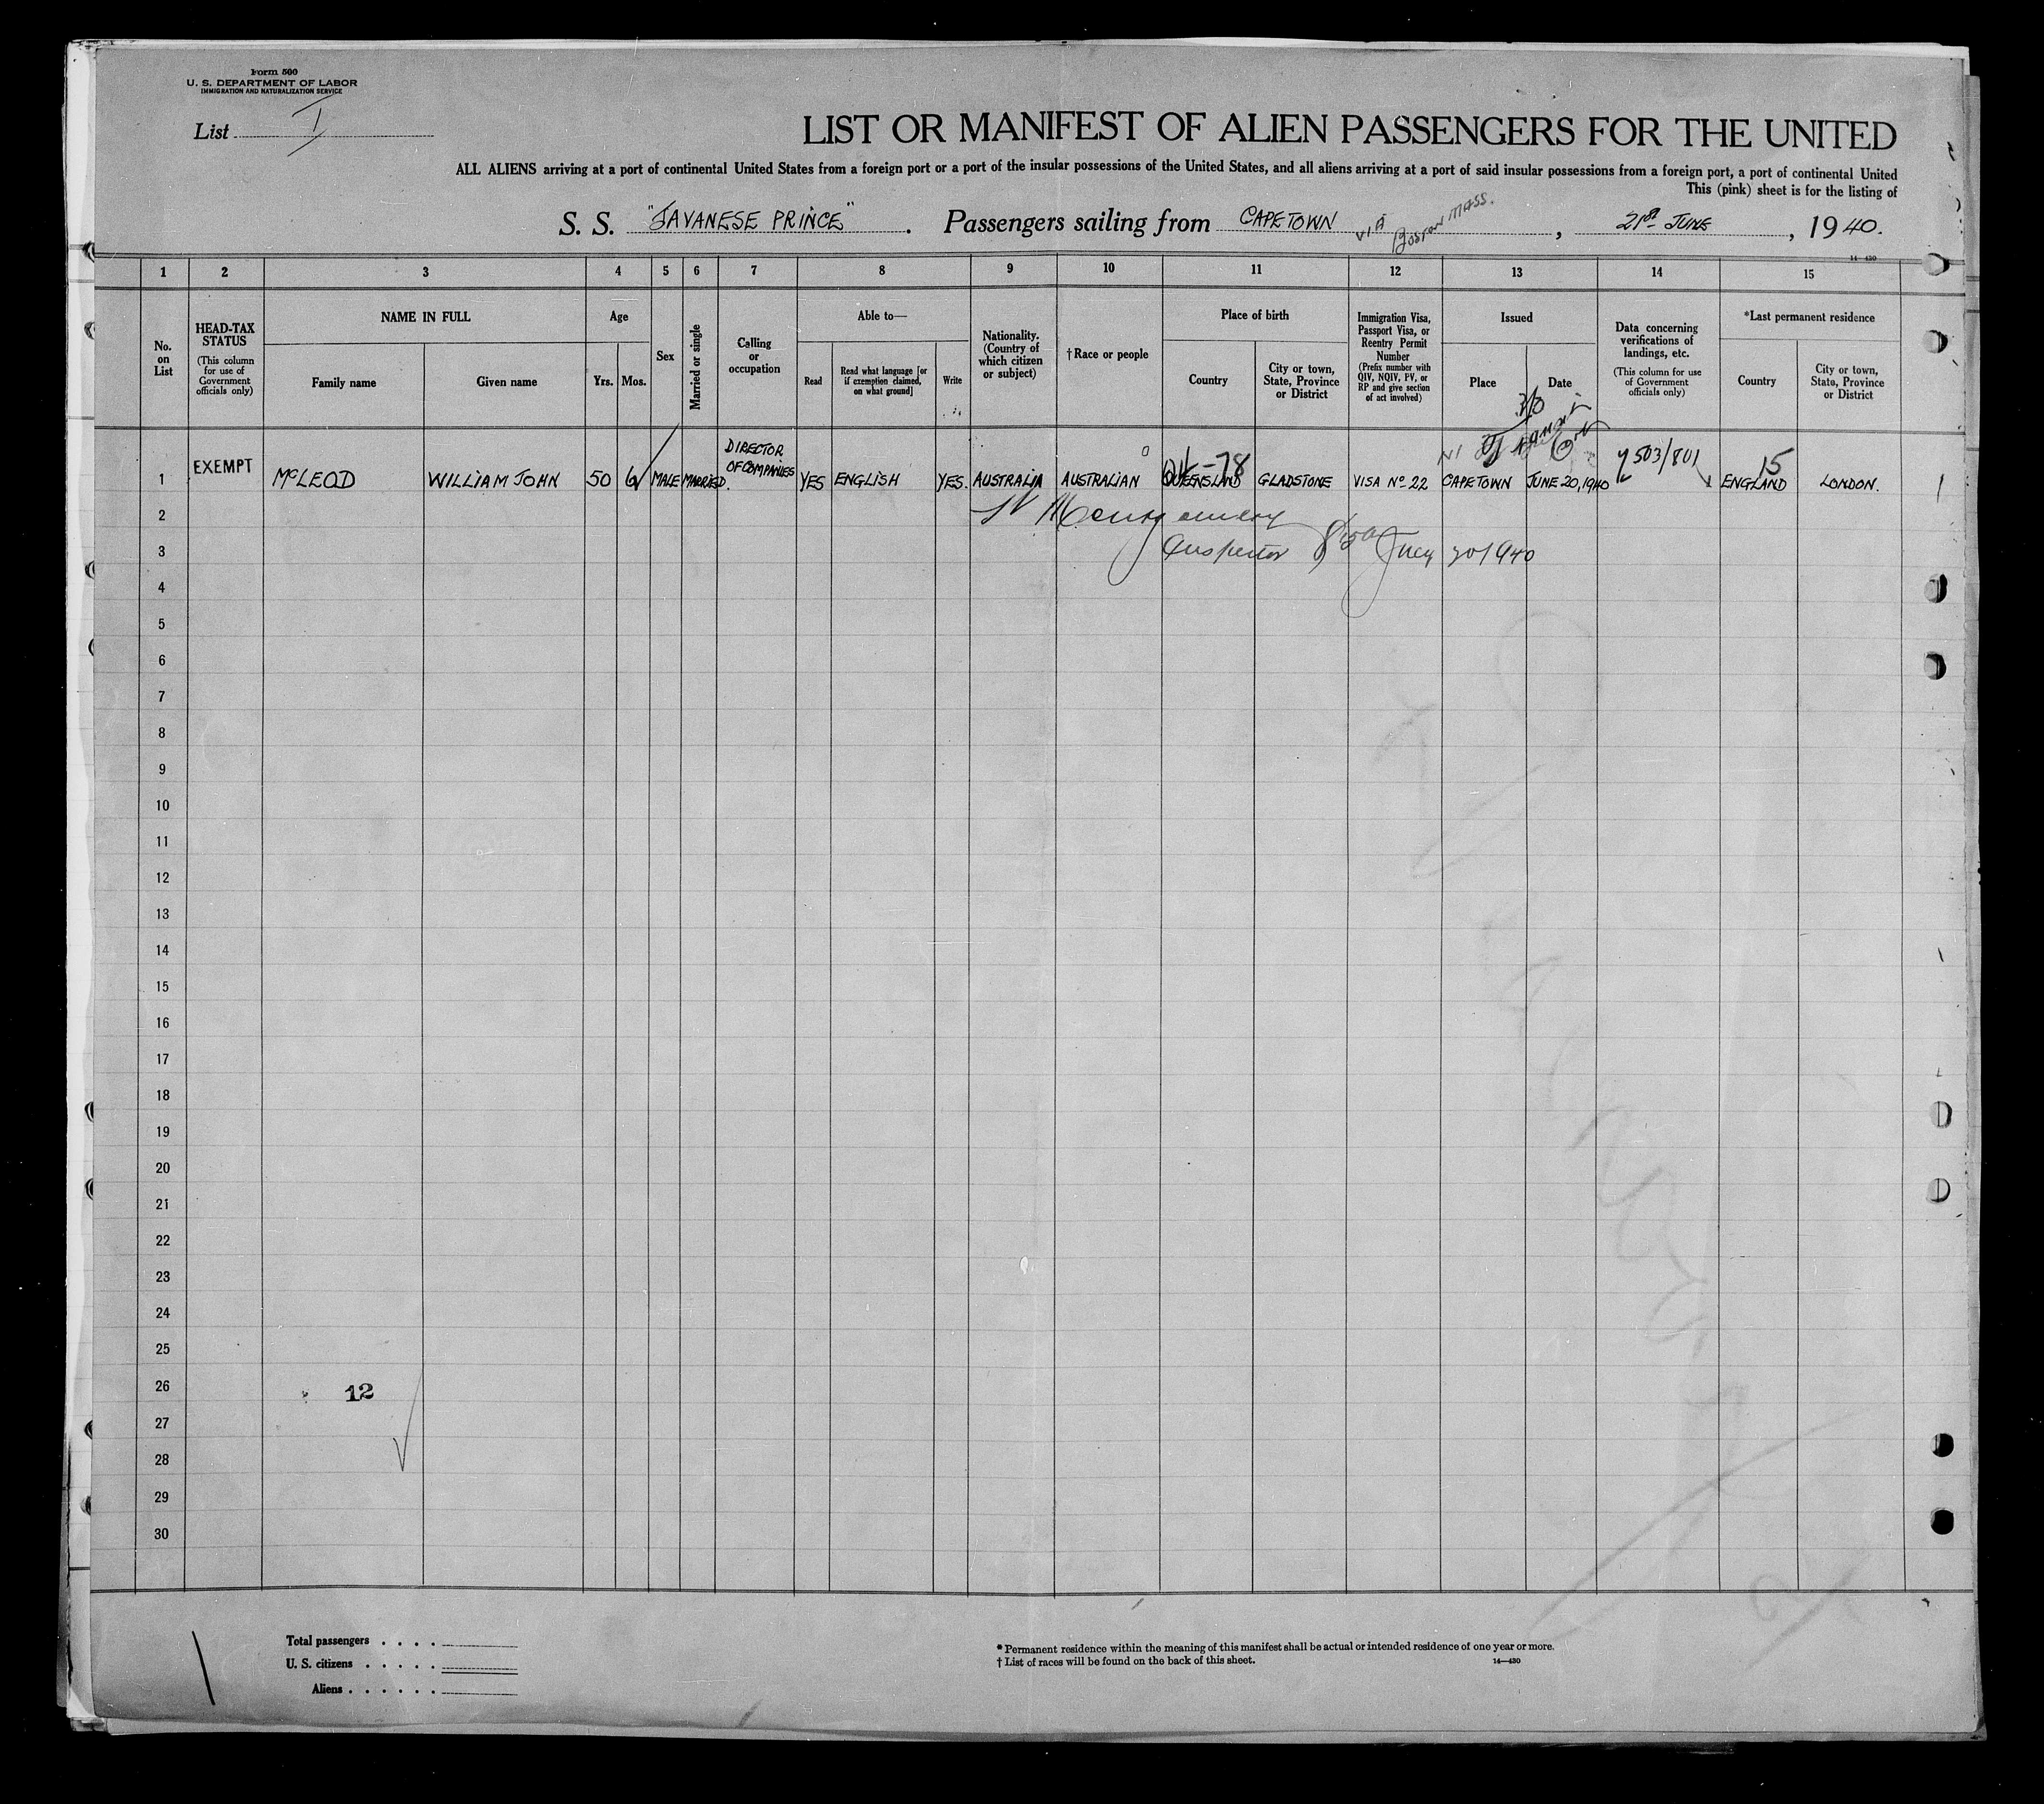 Form 500
U. S. DEPARTMENT OF LABOR
IMMIGRATION AND NATURALIZATION SERVICE
List I
LIST OR MANIFEST OF ALIEN PASSENGERS FOR THE UNITED
ALL ALIENS arriving at a port of continental United States from a foreign port or a port of the insular possessions of the United States, and all aliens arriving at a port of said insular possessions from a foreign port, a port of continental United
This (pink) sheet is for the listing of
S. S. "JAVANESE PRINCE". Passengers sailing from CAPETOWN VIA BOSTON MASS., 21st JUNE, 1940.
14-430
1 2 3 4 5 6 7 8 9 10 11 12 13 14 15
No. on List
HEAD-TAX STATUS
(This column for use of Government officials only)
NAME IN FULL
Family name
Given name
Age
Yrs. Mos.
Sex
Married or single
Calling or occupation
Able to—
Read
Read what language [or if exemption claimed, on what ground]
Write
Nationality. (Country of which citizen or subject)
†Race or people
Place of birth
Country
City or town, State, Province or District
Immigration Visa, Passport Visa, or Reentry Permit Number
(Prefix number with QIV, NQIV, PV, or RP and give section of act involved)
Issued
Place
Date
Data concerning verifications of landings, etc.
(This column for use of Government officials only)
*Last permanent residence
Country
City or town, State, Province or District
1 EXEMPT McLEOD WILLIAM JOHN 50 6 MALE MARRIED. DIRECTOR OF COMPANIES YES ENGLISH YES. AUSTRALIA AUSTRALIAN QUEENSLAND GLADSTONE VISA No 22 CAPETOWN JUNE 20, 1940 503/801 15 ENGLAND LONDON. 1
2 Montgomery
3 Inspector 1940
4
5
6
7
8
9
10
11
12
13
14
15
16
17
18
19
20
21
22
23
24
25
26 12
27
28
29
30
Total passengers . . . .
U. S. citizens . . . . .
Aliens . . . . . .
* Permanent residence within the meaning of this manifest shall be actual or intended residence of one year or more.
† List of races will be found on the back of this sheet.
14—430